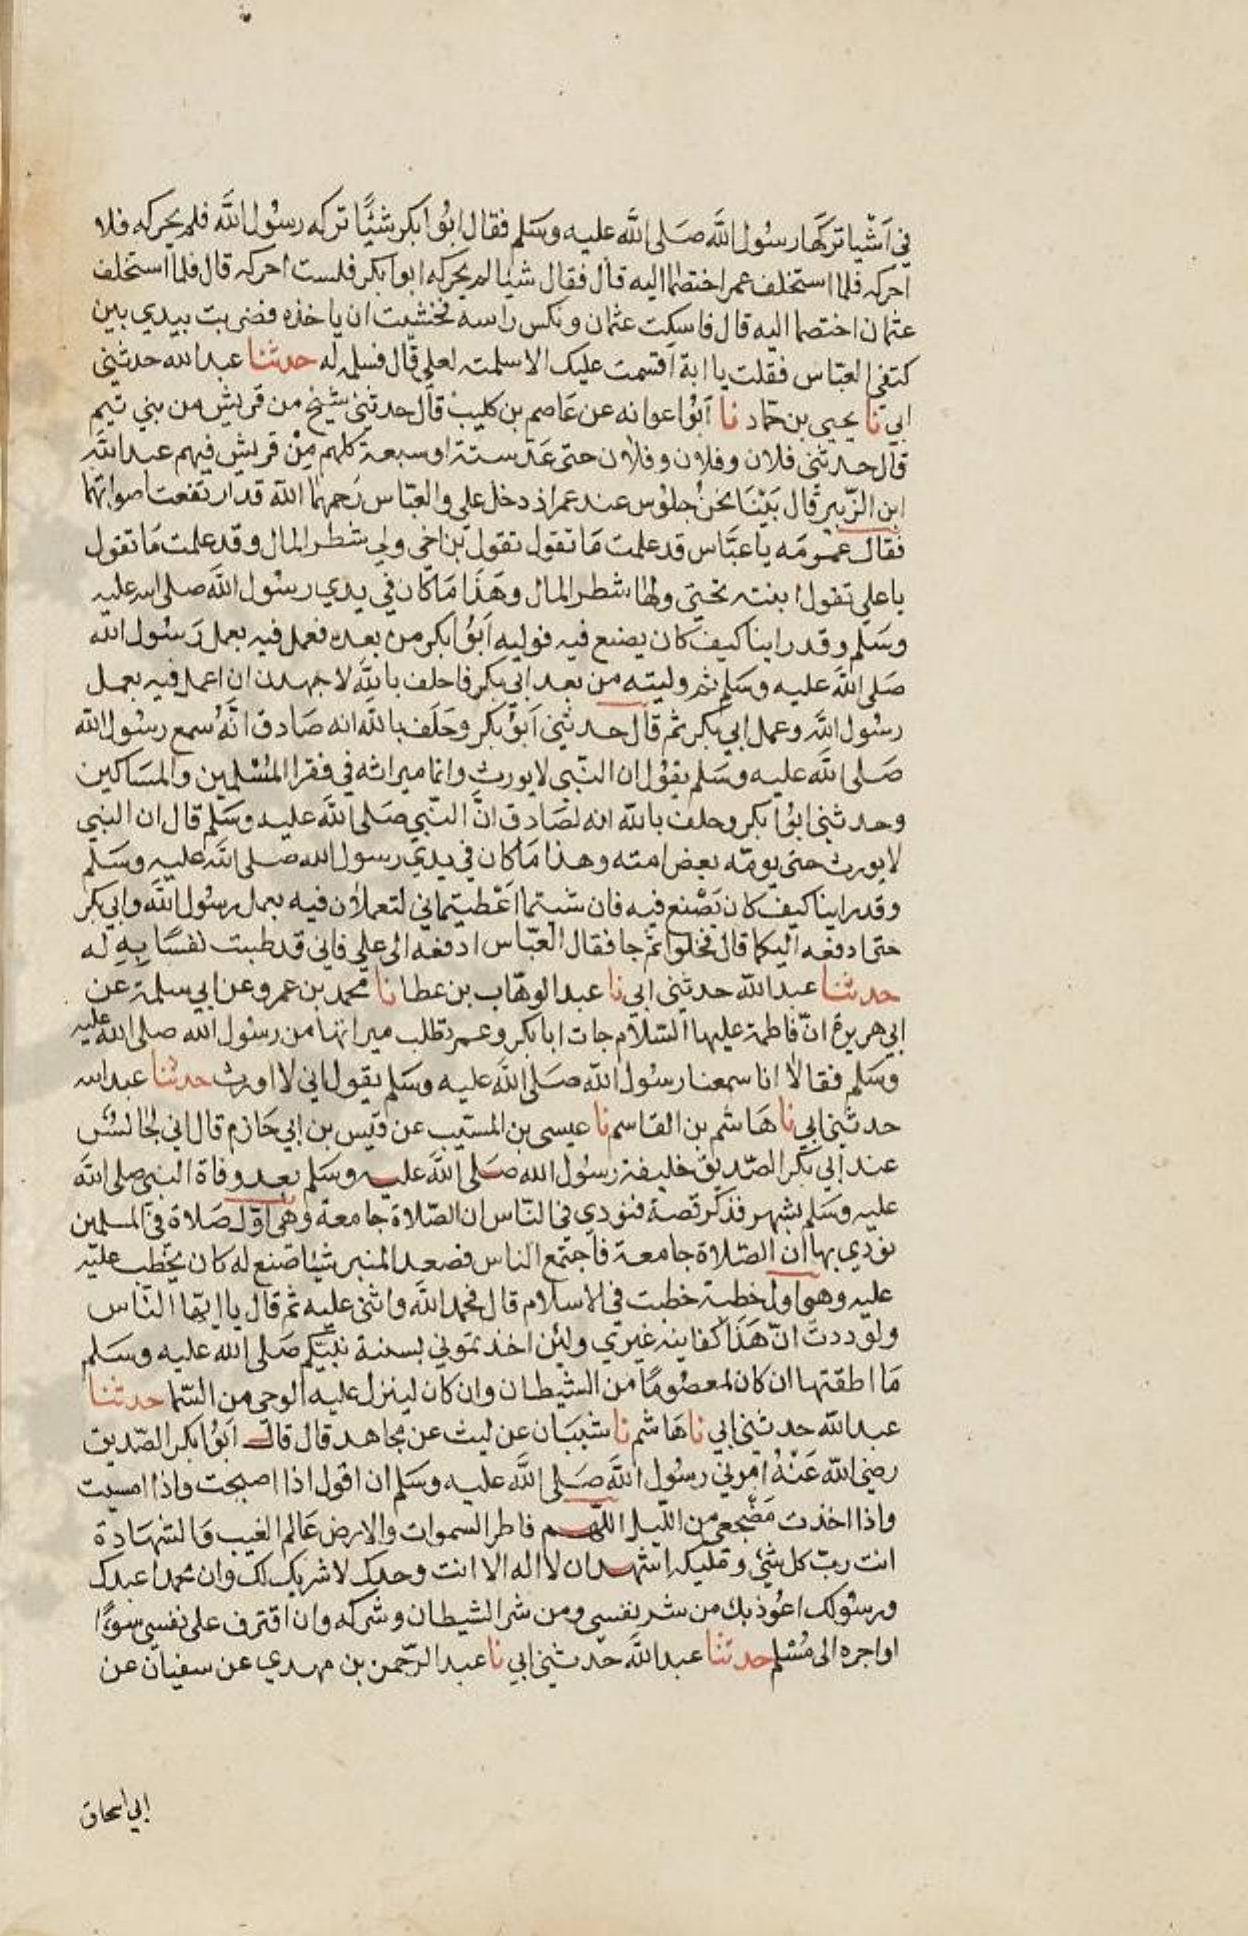 في اَشْيا تركَهَا رسُول اللَّه صَلى اللَّه عليه وسَلم فقال ابُوا بكر شيئًا تركه رسُول اللَّه فلم يحركه فلا
احركه فلما استخلف عمر اختصما اليه قال فقال شيا لم يحركه ابوا بكر فلست احركه قال فلما استخلف
عثمان اختصما اليه قال فاسكت عثمان ونكس راسه فخشيت ان ياخذه فضربت بيدي بين
كتفي العبّاس فقلت يا ابة اقسمت عليك الا سلمته لعلي قال فسلمه له حدثنا عبد الله حدثني
ابي نا يحيى بن حماد نا اَبُوا عوانه عن عَاصم بن كليب قال حدثني شيخ من قريش من بني تيم
قال حدثني فلان وفلان وفلان حتى عَدّ ستة او سبعة كلهم مِنْ قريش فيهم عبد اللَّه
ابن الزّبير قال بَيْنَا نحنُ جلوُس عند عمر اذ دخل علي والعبّاس رَحمهمَا اللَّه قد ارتفعت اصواتهما
فقال عمر مَه يا عبَّاس قد علمت مَا تقول تقول بن اخي ولي شطر المال وقد علمت مَا تقول
يا علي تقول ابنته تحتي ولها شطر المال وهَذَا مَا كان في يدي رسُول اللَّه صلى الله عليه
وسَلم وقد راينا كيفَ كان يصنع فيه فوليه اَبُوا بكر من بعده فعمل فيه بعمل رَسُول الله
صَلى اللَّه عليه وسَلم ثم وليته من بعد ابي بكر فاحلف باللَّه لاجهدن ان اعمل فيه بعمل
رسُول اللَّه وعمل ابي بكر ثم قال حدثني اَبوُ بكر وحَلَف باللَّه انه صَادق انَّهُ سمع رسُول اللَّه
صَلى اللَّه عليه وسَلم يقوُل ان النّبي لا يورث وانما ميراثه في فقرا المسُلمين والمسَاكين
وحدثني ابوُا بكر وحلف باللَّه انه لصَادق انَّ النّبي صَلى اللَّه عليه وسَلم قال ان النبي
لا يورث حتى يومّه بعض امته وهذا مَا كان في يدي رسول الله صلى اللَّه عليه وسَلم
وقد راينا كيفَ كان يَصْنع فيه فان شيتما اعْطيتماني لتعملان فيه بعمل رسُول اللَّه وابي بكر
حتى ادفعه اليكما قال فخلوا ثم جا فقال العبّاس ادفعه الى علي فاني قد طبت نفسًا بِهِ له
حدثنا عبد اللَّه حدثني ابي نا عبد الوهّاب بن عطا نا محمد بن عمرو عن ابي سلمة عن
ابي هريرة انّ فاطمة عليها السَّلام جات ابا بكر وعمر تطلب ميراثها من رسُول الله صلى اللَّه عليه
وسَلم فقالا انا سمعنا رسُول اللَّه صَلى اللَّه عليه وسَلم يقول اني لا اورث حدثنا عبد الله
حدثني ابي نا هَاشم بن القاسم نا عيسى بن المسَيب عن قيس بن ابي حَازم قال اني لجالسُ
عند أبي بَكر الصّديق خليفة رسُول الله صَلى اللَّه عليه وسَلم بعد وفاة النبي صلى اللَّه
عليه وسَلم بشهر فذكر قصة فنودي في النّاس ان الصّلاة جامعة وهي اوّل صَلاة في المسلمين
نودي بها ان الصّلاة جامعة فاجتمع الناس فصعد المنبر شيئا صنع له كان يخطب عليه
عليه وهي اول خطبة خطبت في الاسلام قال فحمد اللَّه واثنى عليه ثم قال يا ايها النَّاس
ولوددت انّ هَذَا كفانيه غيري ولئن اخذتموني بسنة نبيّكم صَلى الله عليه وسَلم
مَا اطقتها ان كان لمعصُومًا من الشيطان وان كان لينزل عليه الوحي من السّما حدثنا
عبد الله حدثني ابي نا هَا شم نا شيبَان عن ليث عن مجاهد قال قال اَبُوا بكر الصّديق
رضي الله عَنْهُ امرني رسُول اللَّه صَلى اللَّه عليه وسَلم ان اقول اذا اصبحت واذا امسيت
واذا اخذت مَضْجعي من الليل اللهم فاطر السموات والارض عَالم الغيب وَالشهَادة
انت ربّ كل شيْ ومليكه اشهد ان لا اله الا انت وحدك لا شريك لك وان محمدا عبدك
ورسُولك اعوُذ بك من شر نفسي ومن شر الشيطان وشركه وان اقترف على نفسي سوءًا
او اجره الى مُسْلم حدثنا عبد اللَّه حدّثني ابي نا عبد الرّحمن بن مهدي عن سفيان عن
ابي اسحاق